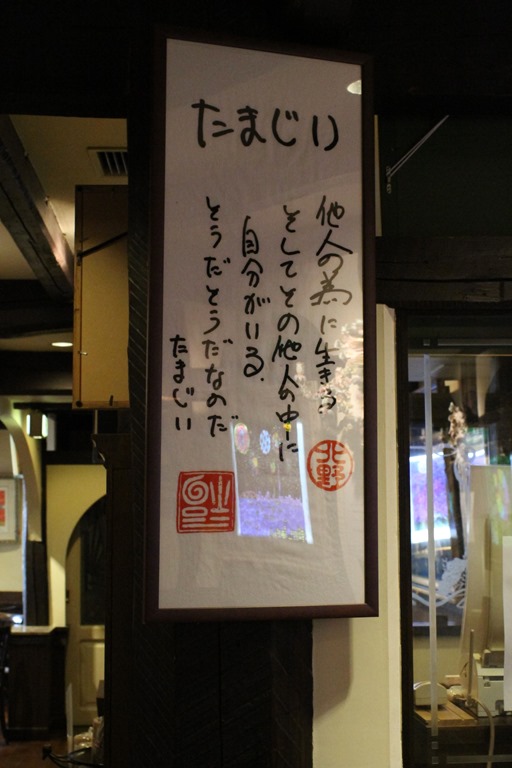 たまじい
他人の為に生きる
そしてその他人の中に
自分がいる.
とうだとうだなのだ
たまじい
北野